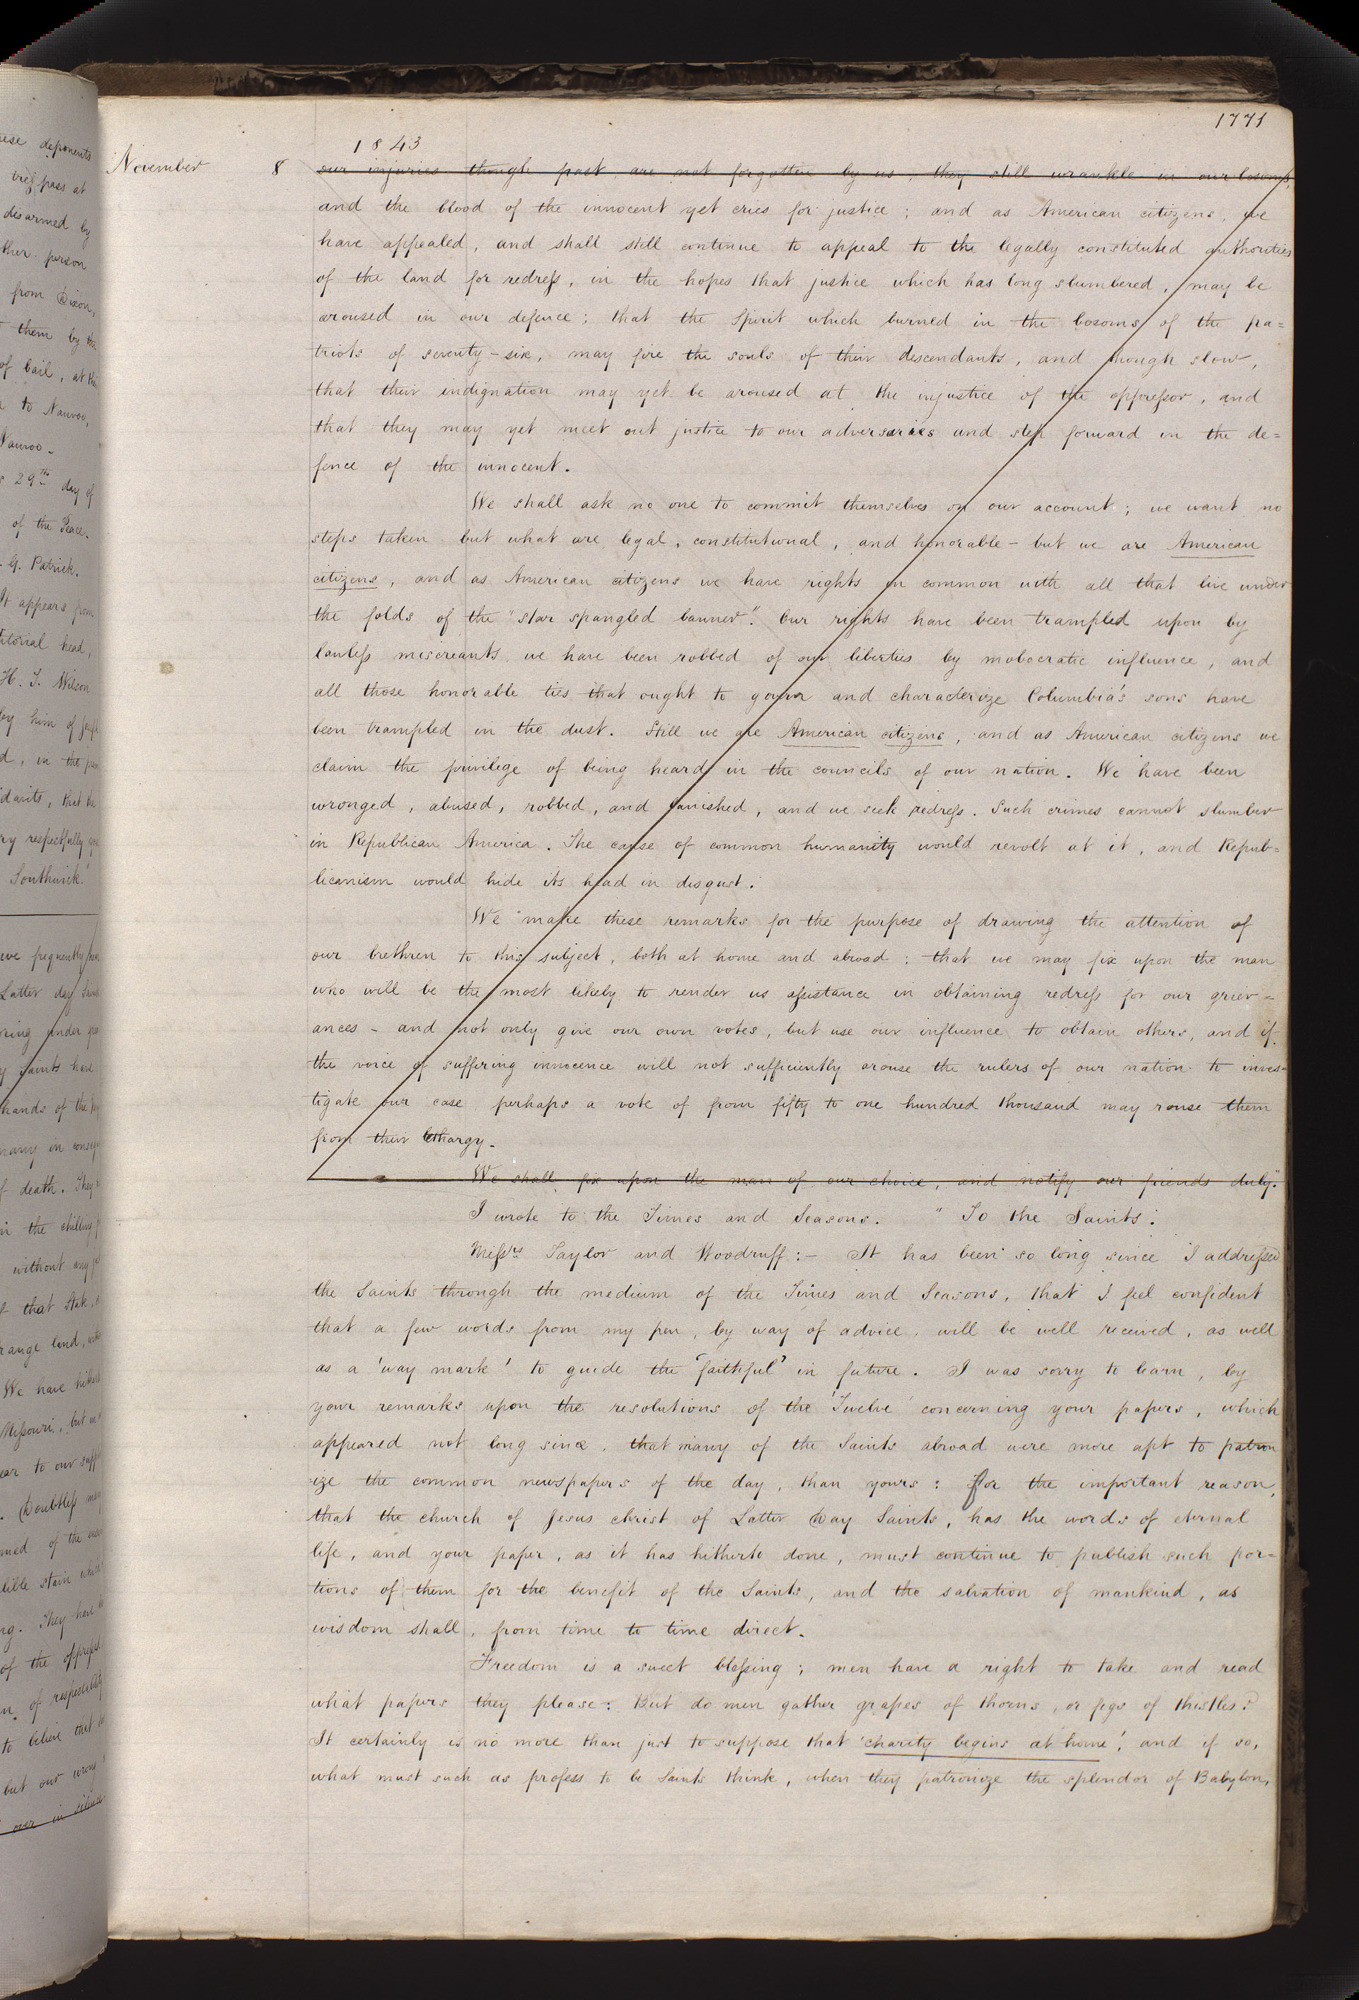 1771
1843
November 8 our injuries though past are not forgotten by us; they still wrankle in our bosoms,
and the blood of the innocent yet cries for justice; and as American citizens, we
have appealed, and shall still continue to appeal to the legally constituted authorities
of the land for redress, in the hopes that justice which has long slumbered, may be
aroused in our defence; that the Spirit which burned in the bosoms of the pa=
triots of seventy-six, may fire the souls of their descendants, and though slow,
that their indignation may yet be aroused at the injustice of the oppressor, and
that they may yet meet out justice to our adversaries and step forward in the de=
fence of the innocent.
We shall ask no one to commit themselves on our account; we want no
steps taken but what are legal, constitutional, and honorable - but we are American
citizens, and as American citizens we have rights in common with all that live under
the folds of the "star spangled banner". Our rights have been trampled upon by
lawless miscreants we have been robbed of our liberties by mobocratic influence, and
all those honorable ties that ought to govern and characterize Columbia's sons have
been trampled in the dust. Still we are American citizens, and as American citizens we
claim the privilege of being heard in the councils of our nation. We have been
wronged, abused, robbed, and banished, and we seek redress. Such crimes cannot slumber
in Republican America. The cause of common humanity would revolt at it, and Repub=
licanism would hide its head in disgust.
We make these remarks for the purpose of drawing the attention of
our brethren to this subject, both at home and abroad; that we may fix upon the man
who will be the most likely to render us assistance in obtaining redress for our griev=
ances - and not only give our own votes, but use our influence to obtain others, and if
the voice of suffering innocence will not sufficiently arouse the rulers of our nation to inves=
tigate our case perhaps a vote of from fifty to one hundred thousand may rouse them
from their lethargy.
We shall fix upon the man of our choice, and notify our friends duly."
I wrote to the Times and Seasons. "To the Saints.
Messrs Taylor and Woodruff:- It has been so long since I addressed
the Saints through the medium of the Times and Seasons, that I feel confident
that a few words from my pen, by way of advice, will be well received, as well
as a 'way mark' to guide the "faithful" in future. I was sorry to learn, by
your remarks upon the resolutions of the 'Twelve' concerning your papers, which
appeared not long since, that many of the Saints abroad were more apt to patron
ize the common newspapers of the day, than yours: for the important reason,
that the church of Jesus christ of Latter Day Saints, has the words of eternal
life, and your paper, as it has hitherto done, must continue to publish such por=
tions of them for the benefit of the Saints, and the salvation of mankind, as
wisdom shall, from time to time direct.
Freedom is a sweet blessing; men have a right to take and read
what papers they please: But do men gather grapes of thorns, or figs of thistles?
It certainly is no more than just to suppose that 'charity begins at home'; and if so,
what must such as profess to be Saints think, when they patronize the splendor of Babylon,
these deponents
disarmed by
person
from Dixon,
them by the
of bail, at
to Nauvoo,
Nauvoo.
29th day of
of the Peace.
G. Patrick.
It appears from
head,
Wilson
by him of
respectfully
Southwick."
frequently
Latter day
under
Saints have
hands of the
many in
of death. They
in the chilling
without any
that
land,
We have
Missouri, but
to our
Doubtless
of the
stain
They have
of the
of
to believe that
but our wrongs
over in silence